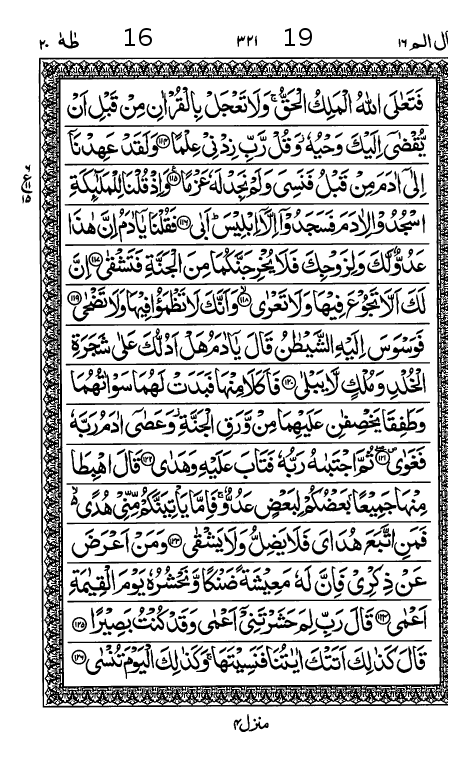 قال الم ١٦ 19 ٣٢١ 16 طٰهٰ ٢٠
فَتَعٰلَى اللّٰهُ الْمَلِكُ الْحَقُّ ۚ وَلَا تَعْجَلْ بِالْقُرْاٰنِ مِنْ قَبْلِ اَنْ
يُّقْضٰٓى اِلَيْكَ وَحْيُهٗ ؗ وَقُلْ رَّبِّ زِدْنِيْ عِلْمًا ﴿١١٤﴾ وَلَقَدْ عَهِدْنَاۤ
اِلٰٓى اٰدَمَ مِنْ قَبْلُ فَنَسِيَ وَلَمْ نَجِدْ لَهٗ عَزْمًا ﴿١١٥﴾ وَاِذْ قُلْنَا لِلْمَلٰٓئِكَةِ
اسْجُدُوْا لِاٰدَمَ فَسَجَدُوْۤا اِلَّاۤ اِبْلِيْسَ ؕ اَبٰى ﴿١١٦﴾ فَقُلْنَا يٰۤاٰدَمُ اِنَّ هٰذَا
عَدُوٌّ لَّكَ وَلِزَوْجِكَ فَلَا يُخْرِجَنَّكُمَا مِنَ الْجَنَّةِ فَتَشْقٰى ﴿١١٧﴾ اِنَّ
لَكَ اَلَّا تَجُوْعَ فِيْهَا وَلَا تَعْرٰى ﴿١١٨﴾ وَاَنَّكَ لَا تَظْمَؤُا فِيْهَا وَلَا تَضْحٰى ﴿١١٩﴾
فَوَسْوَسَ اِلَيْهِ الشَّيْطٰنُ قَالَ يٰۤاٰدَمُ هَلْ اَدُلُّكَ عَلٰى شَجَرَةِ
الْخُلْدِ وَمُلْكٍ لَّا يَبْلٰى ﴿١٢٠﴾ فَاَكَلَا مِنْهَا فَبَدَتْ لَهُمَا سَوْاٰتُهُمَا
وَطَفِقَا يَخْصِفٰنِ عَلَيْهِمَا مِنْ وَّرَقِ الْجَنَّةِ ؗ وَعَصٰٓى اٰدَمُ رَبَّهٗ
فَغَوٰى ﴿١٢١﴾ ثُمَّ اجْتَبٰهُ رَبُّهٗ فَتَابَ عَلَيْهِ وَهَدٰى ﴿١٢٢﴾ قَالَ اهْبِطَا
مِنْهَا جَمِيْعًاۢ بَعْضُكُمْ لِبَعْضٍ عَدُوٌّ ۚ فَاِمَّا يَاْتِيَنَّكُمْ مِّنِّيْ هُدًى ۙ
فَمَنِ اتَّبَعَ هُدَايَ فَلَا يَضِلُّ وَلَا يَشْقٰى ﴿١٢٣﴾ وَمَنْ اَعْرَضَ
عَنْ ذِكْرِيْ فَاِنَّ لَهٗ مَعِيْشَةً ضَنْكًا وَّنَحْشُرُهٗ يَوْمَ الْقِيٰمَةِ
اَعْمٰى ﴿١٢٤﴾ قَالَ رَبِّ لِمَ حَشَرْتَنِيْۤ اَعْمٰى وَقَدْ كُنْتُ بَصِيْرًا ﴿١٢٥﴾
قَالَ كَذٰلِكَ اَتَتْكَ اٰيٰتُنَا فَنَسِيْتَهَا ۚ وَكَذٰلِكَ الْيَوْمَ تُنْسٰى ﴿١٢٦﴾
منزل ٤